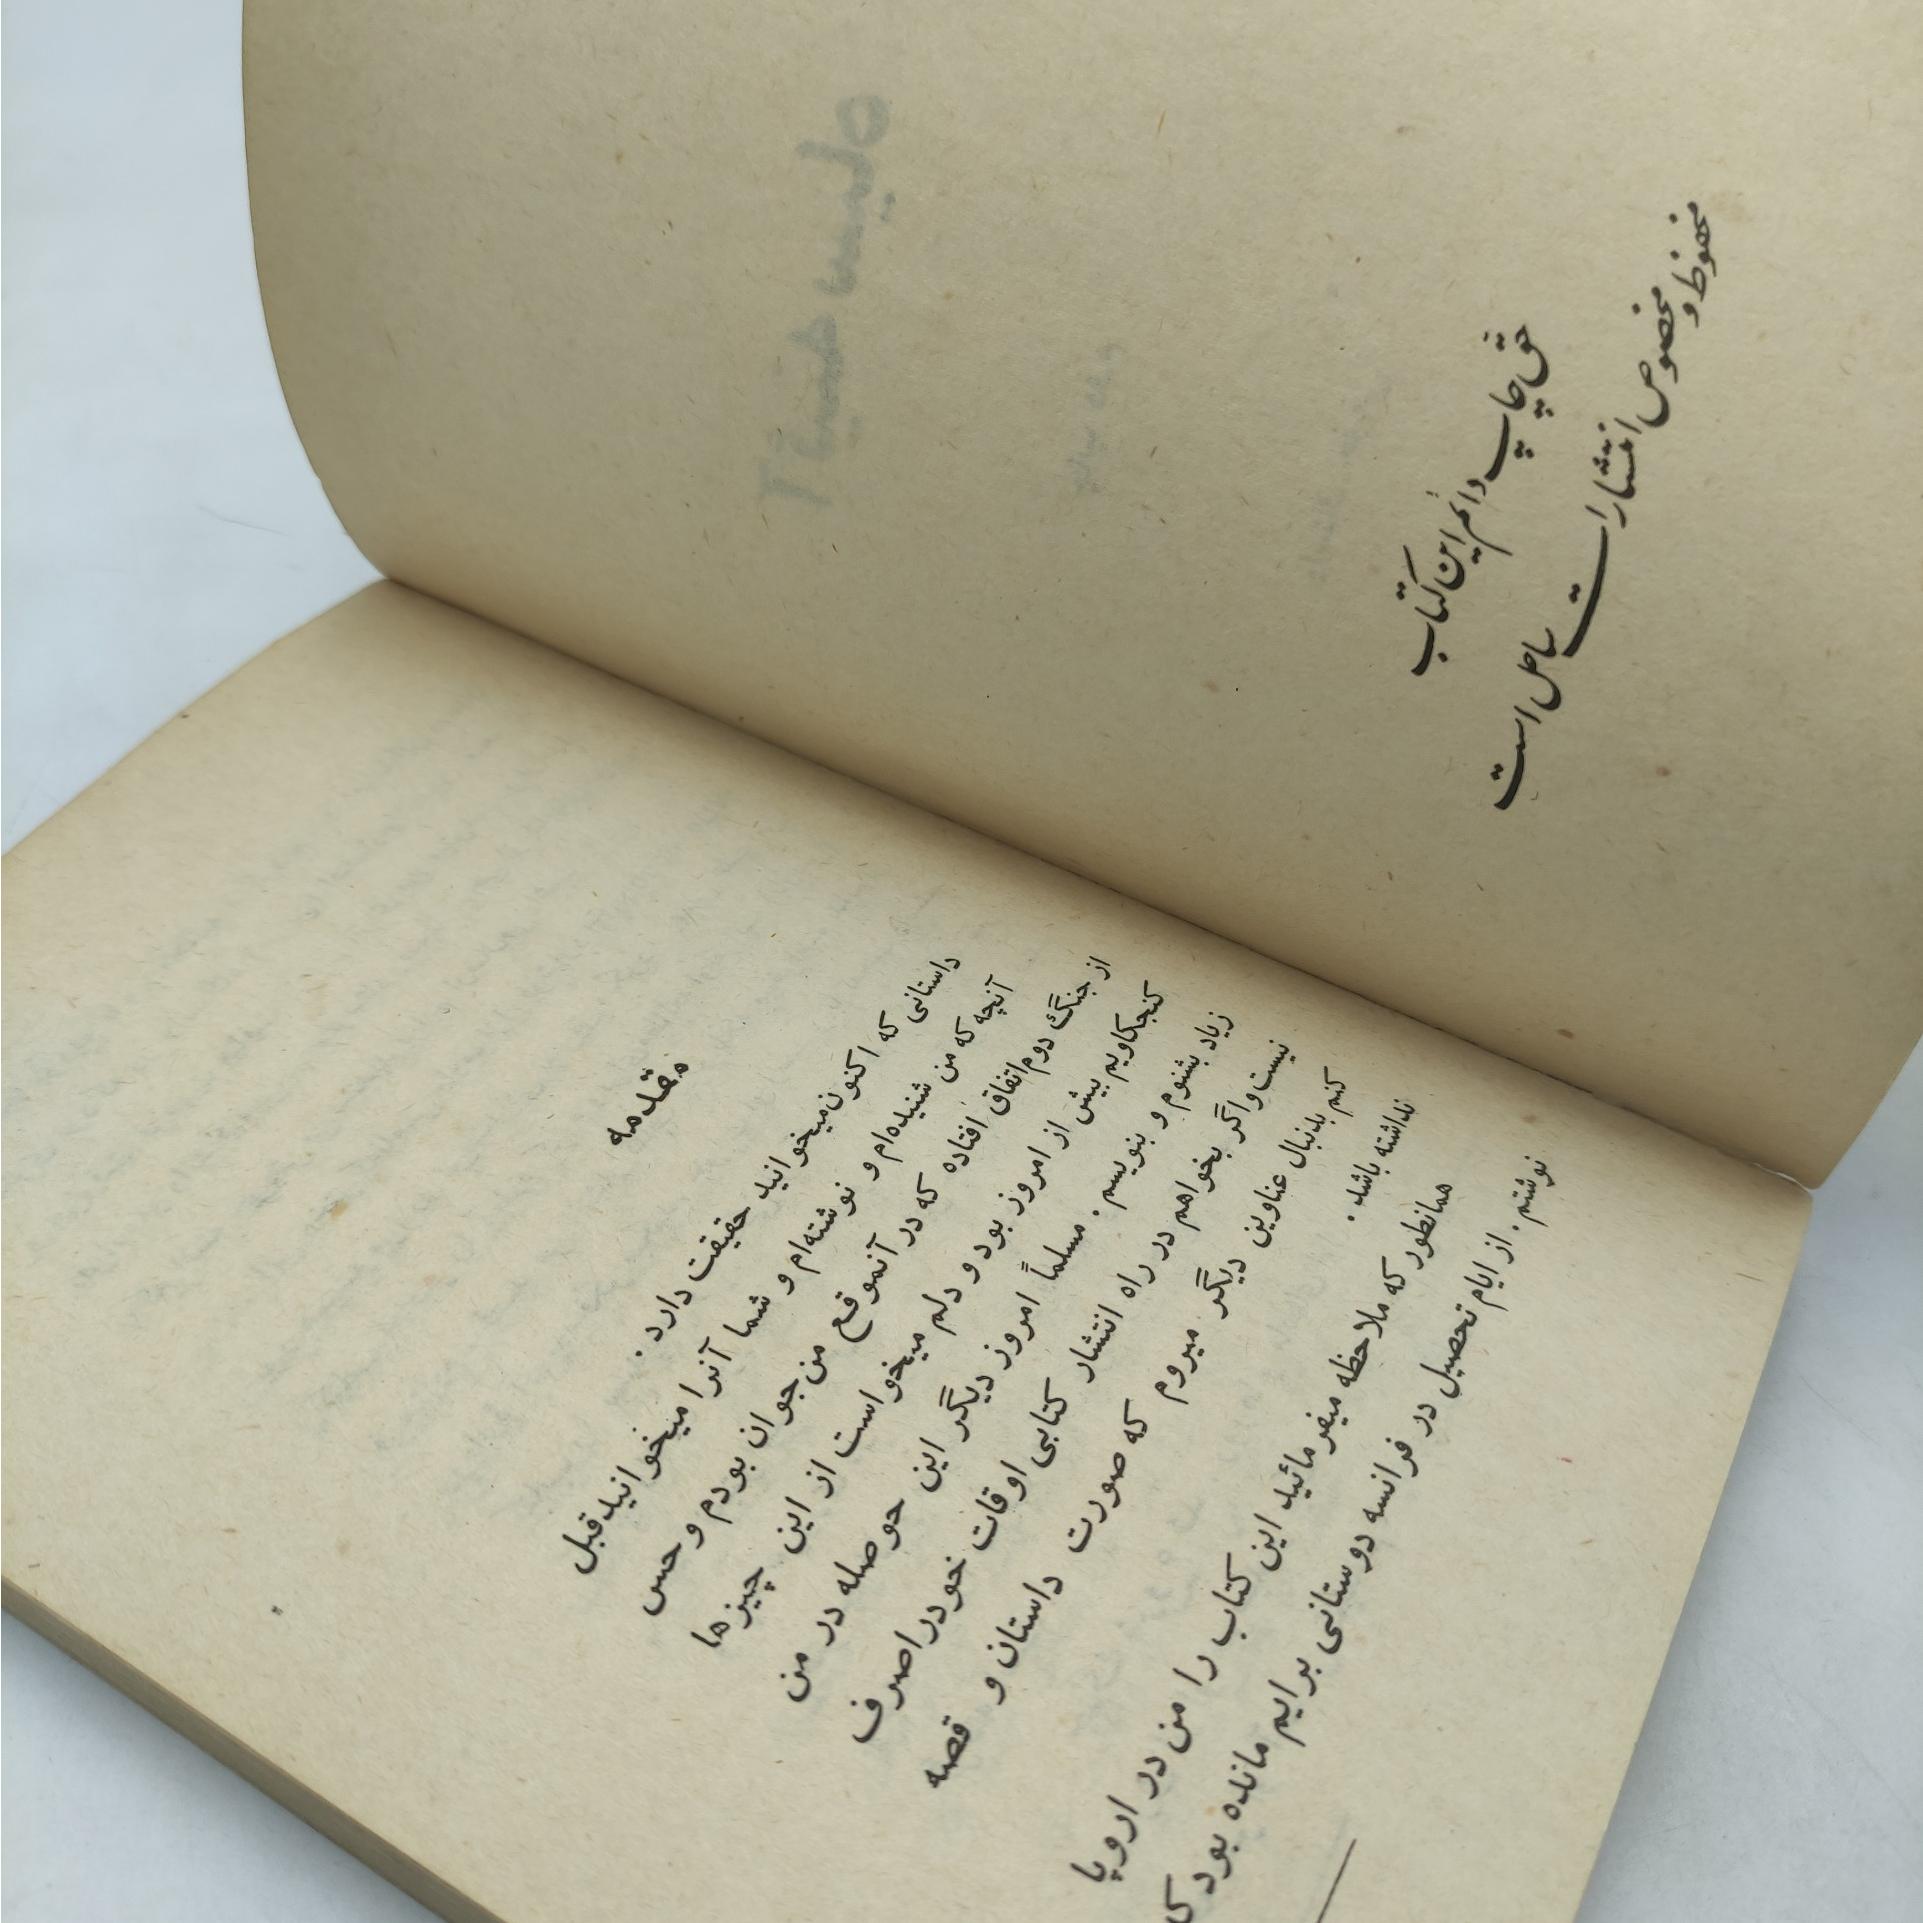 حق چاپ دائم این کتاب
محفوظ و مخصوص انتشارات
ساحل است
مقدمه
داستانی که اکنون میخوانید حقیقت دارد.
آنچه که من شنیده‌ام و نوشته‌ام و شما آنرا میخوانید قبل
از جنگ دوم اتفاق افتاده که در آنموقع من جوان بودم و حس
کنجکاویم بیش از امروز بود و دلم میخواست از این چیزها
زیاد بشنوم و بنویسم. مسلماً امروز دیگر این حوصله در من
نیست و اگر بخواهم در راه انتشار کتابی اوقات خود را صرف
کنم بدنبال عناوین دیگر میروم که صورت داستان و قصه
نداشته باشد.
همانطور که ملاحظه میفرمائید این کتاب را من در اروپا
نوشتم. از ایام تحصیل در فرانسه دوستانی برایم مانده بود